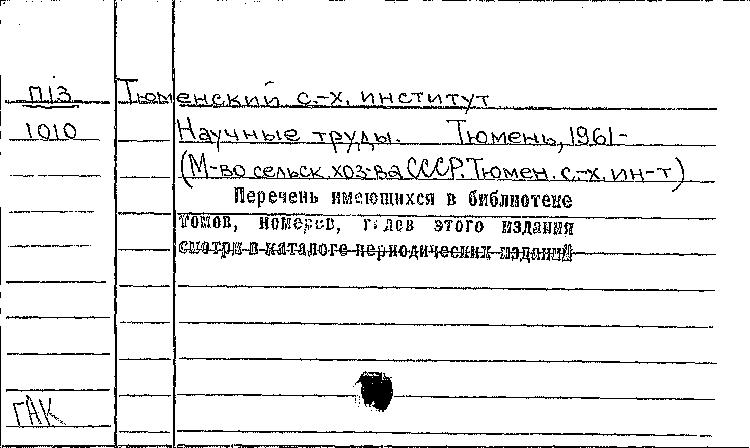 П13
Тюменский с.-х. институт
1010
Научные труды. Тюмень, 1961-
(М-во сельск. хоз-ва СССР. Тюмен. с.-х. ин-т)
Перечень имеющихся в библиотеке
томов, номеров, годов этого издания
смотри в каталоге периодических изданий
ГАК